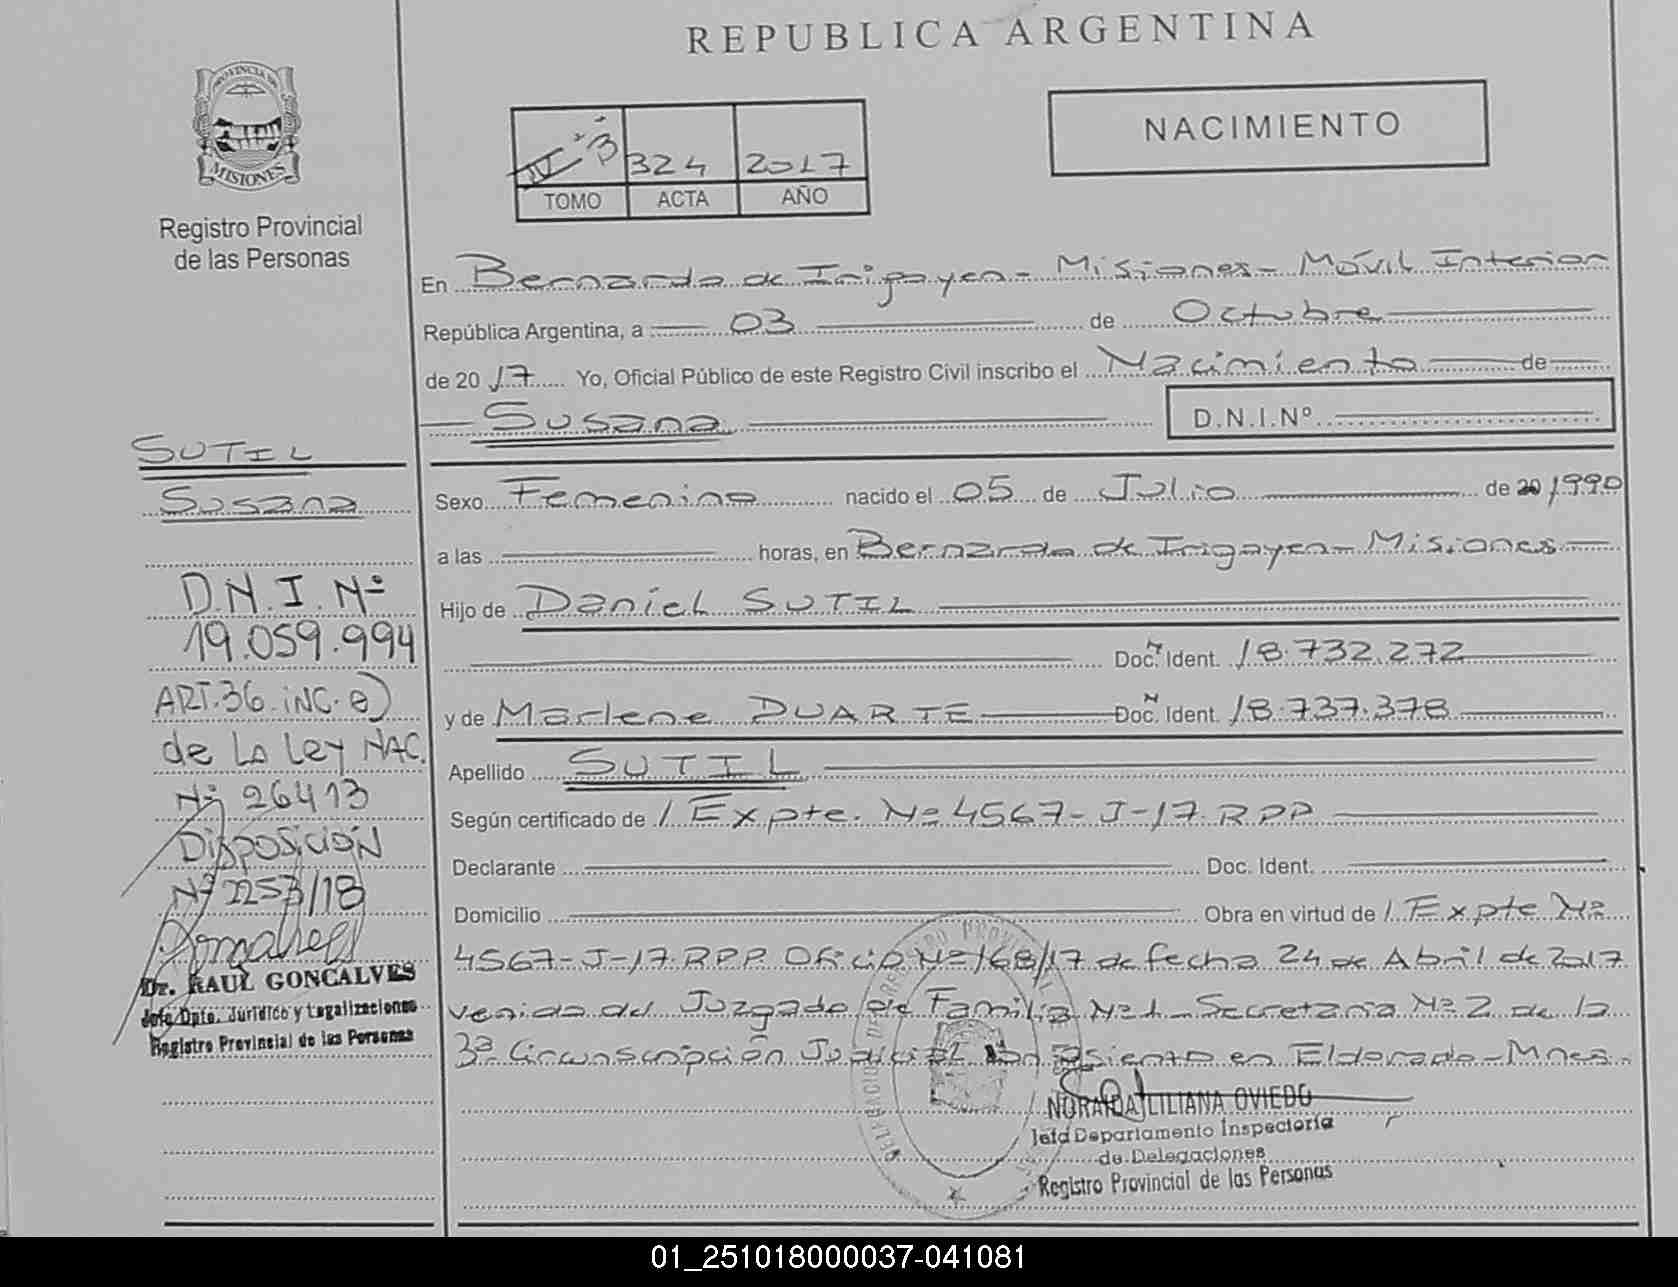 REPUBLICA ARGENTINA
PROVINCIA DE
MISIONES
Registro Provincial
de las Personas
3
324
2017
TOMO
ACTA
AÑO
NACIMIENTO
En Bernardo de Irigoyen - Misiones - Móvil Interior
República Argentina, a 03 de Octubre
de 2017 Yo, Oficial Público de este Registro Civil inscribo el Nacimiento de
Susana D.N.I.Nº
Sexo Femenino nacido el 05 de Julio de 20 1990
a las horas, en Bernardo de Irigoyen - Misiones
Hijo de Daniel SUTIL
Doc. Ident. 18.732.272
y de Marlene DUARTE Doc. Ident. 18.737.378
Apellido SUTIL
Según certificado de / Expte. Nº 4567-J-17. RPP
Declarante Doc. Ident.
Domicilio Obra en virtud de / Expte Nº
4567-J-17. RPP Oficio Nº 168/17 de fecha 24 de Abril de 2017
venido del Juzgado de Familia Nº 1 - Secretaria Nº 2 de la
3ª Circunscripción Judicial con asiento en Eldorado - Mnes.
NORAIDA LILIANA OVIEDO
Jefa Departamento Inspectoría
de Delegaciones
Registro Provincial de las Personas
SUTIL
Susana
D.N.I. Nº
19.059.994
ART. 36 iNC. a)
de La Ley NAC.
Nº 26413
DISPOSICIÓN
Nº 2253/18
Dr. RAUL GONCALVES
Jefe Dpto. Jurídico y Legalizaciones
Registro Provincial de las Personas
01_251018000037-041081